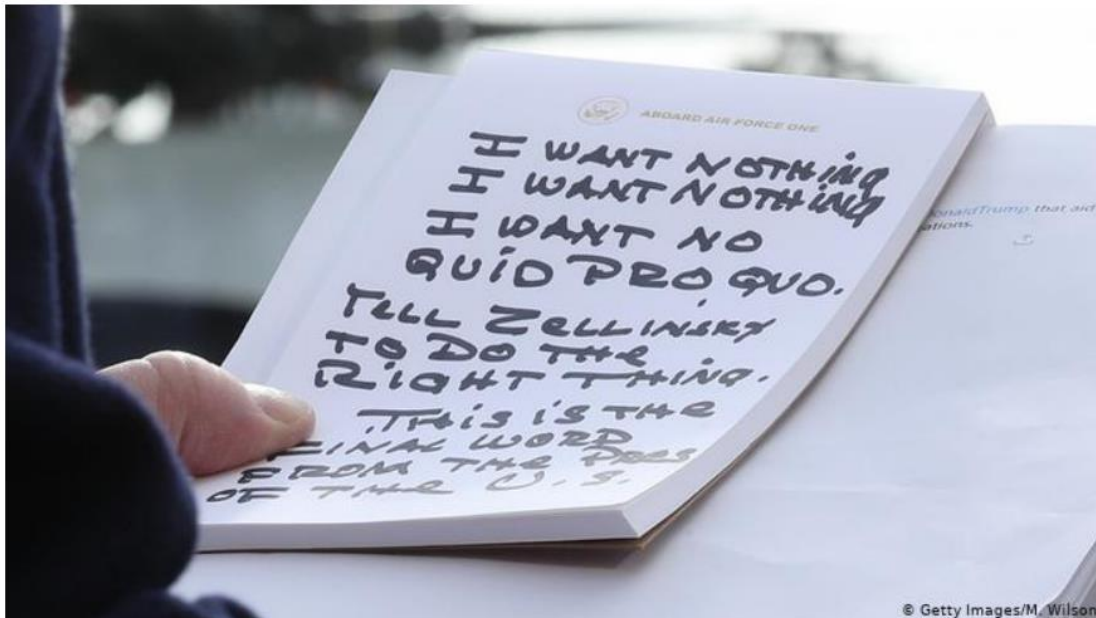 ABOARD AIR FORCE ONE
I WANT NOTHING
I WANT NOTHING
I WANT NO
QUID PRO QUO.
TELL ZELLINSKY
TO DO THE
RIGHT THING.
THIS IS THE
FINAL WORD
FROM THE PRES
OF THE U.S.
onaldTrump that aid
ations.
© Getty Images/M. Wilson